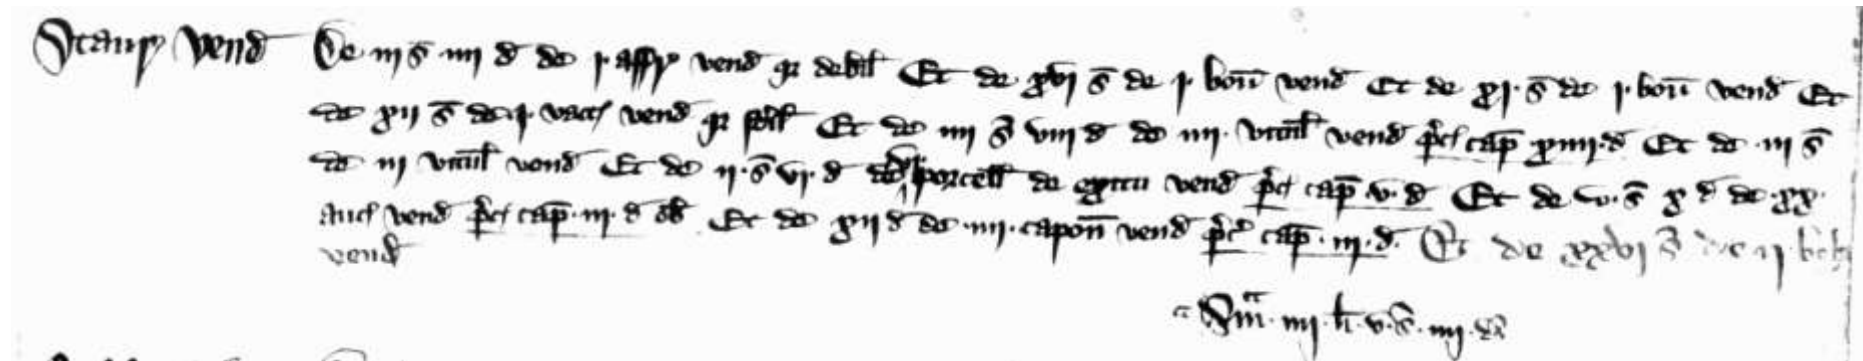 Staur vend De iii s iiii d de i affr vend qr debil Et de xvi s de i bou vend Et de xi s de i bou vend Et
de xii s de i vacc vend qr steril Et de iiii s viii d de iiii vitul vend prec cap xiiii d Et de iii s
de iii vitul vend Et de ii s vi d de vi porcell de exitu vend prec cap v d Et de v s x d de xx
auc vend prec cap iii d ob Et de xii d de iiii capon vend prec cap iii d Et de xxvi s de ii
vend
Sma iiii li v s iiii d